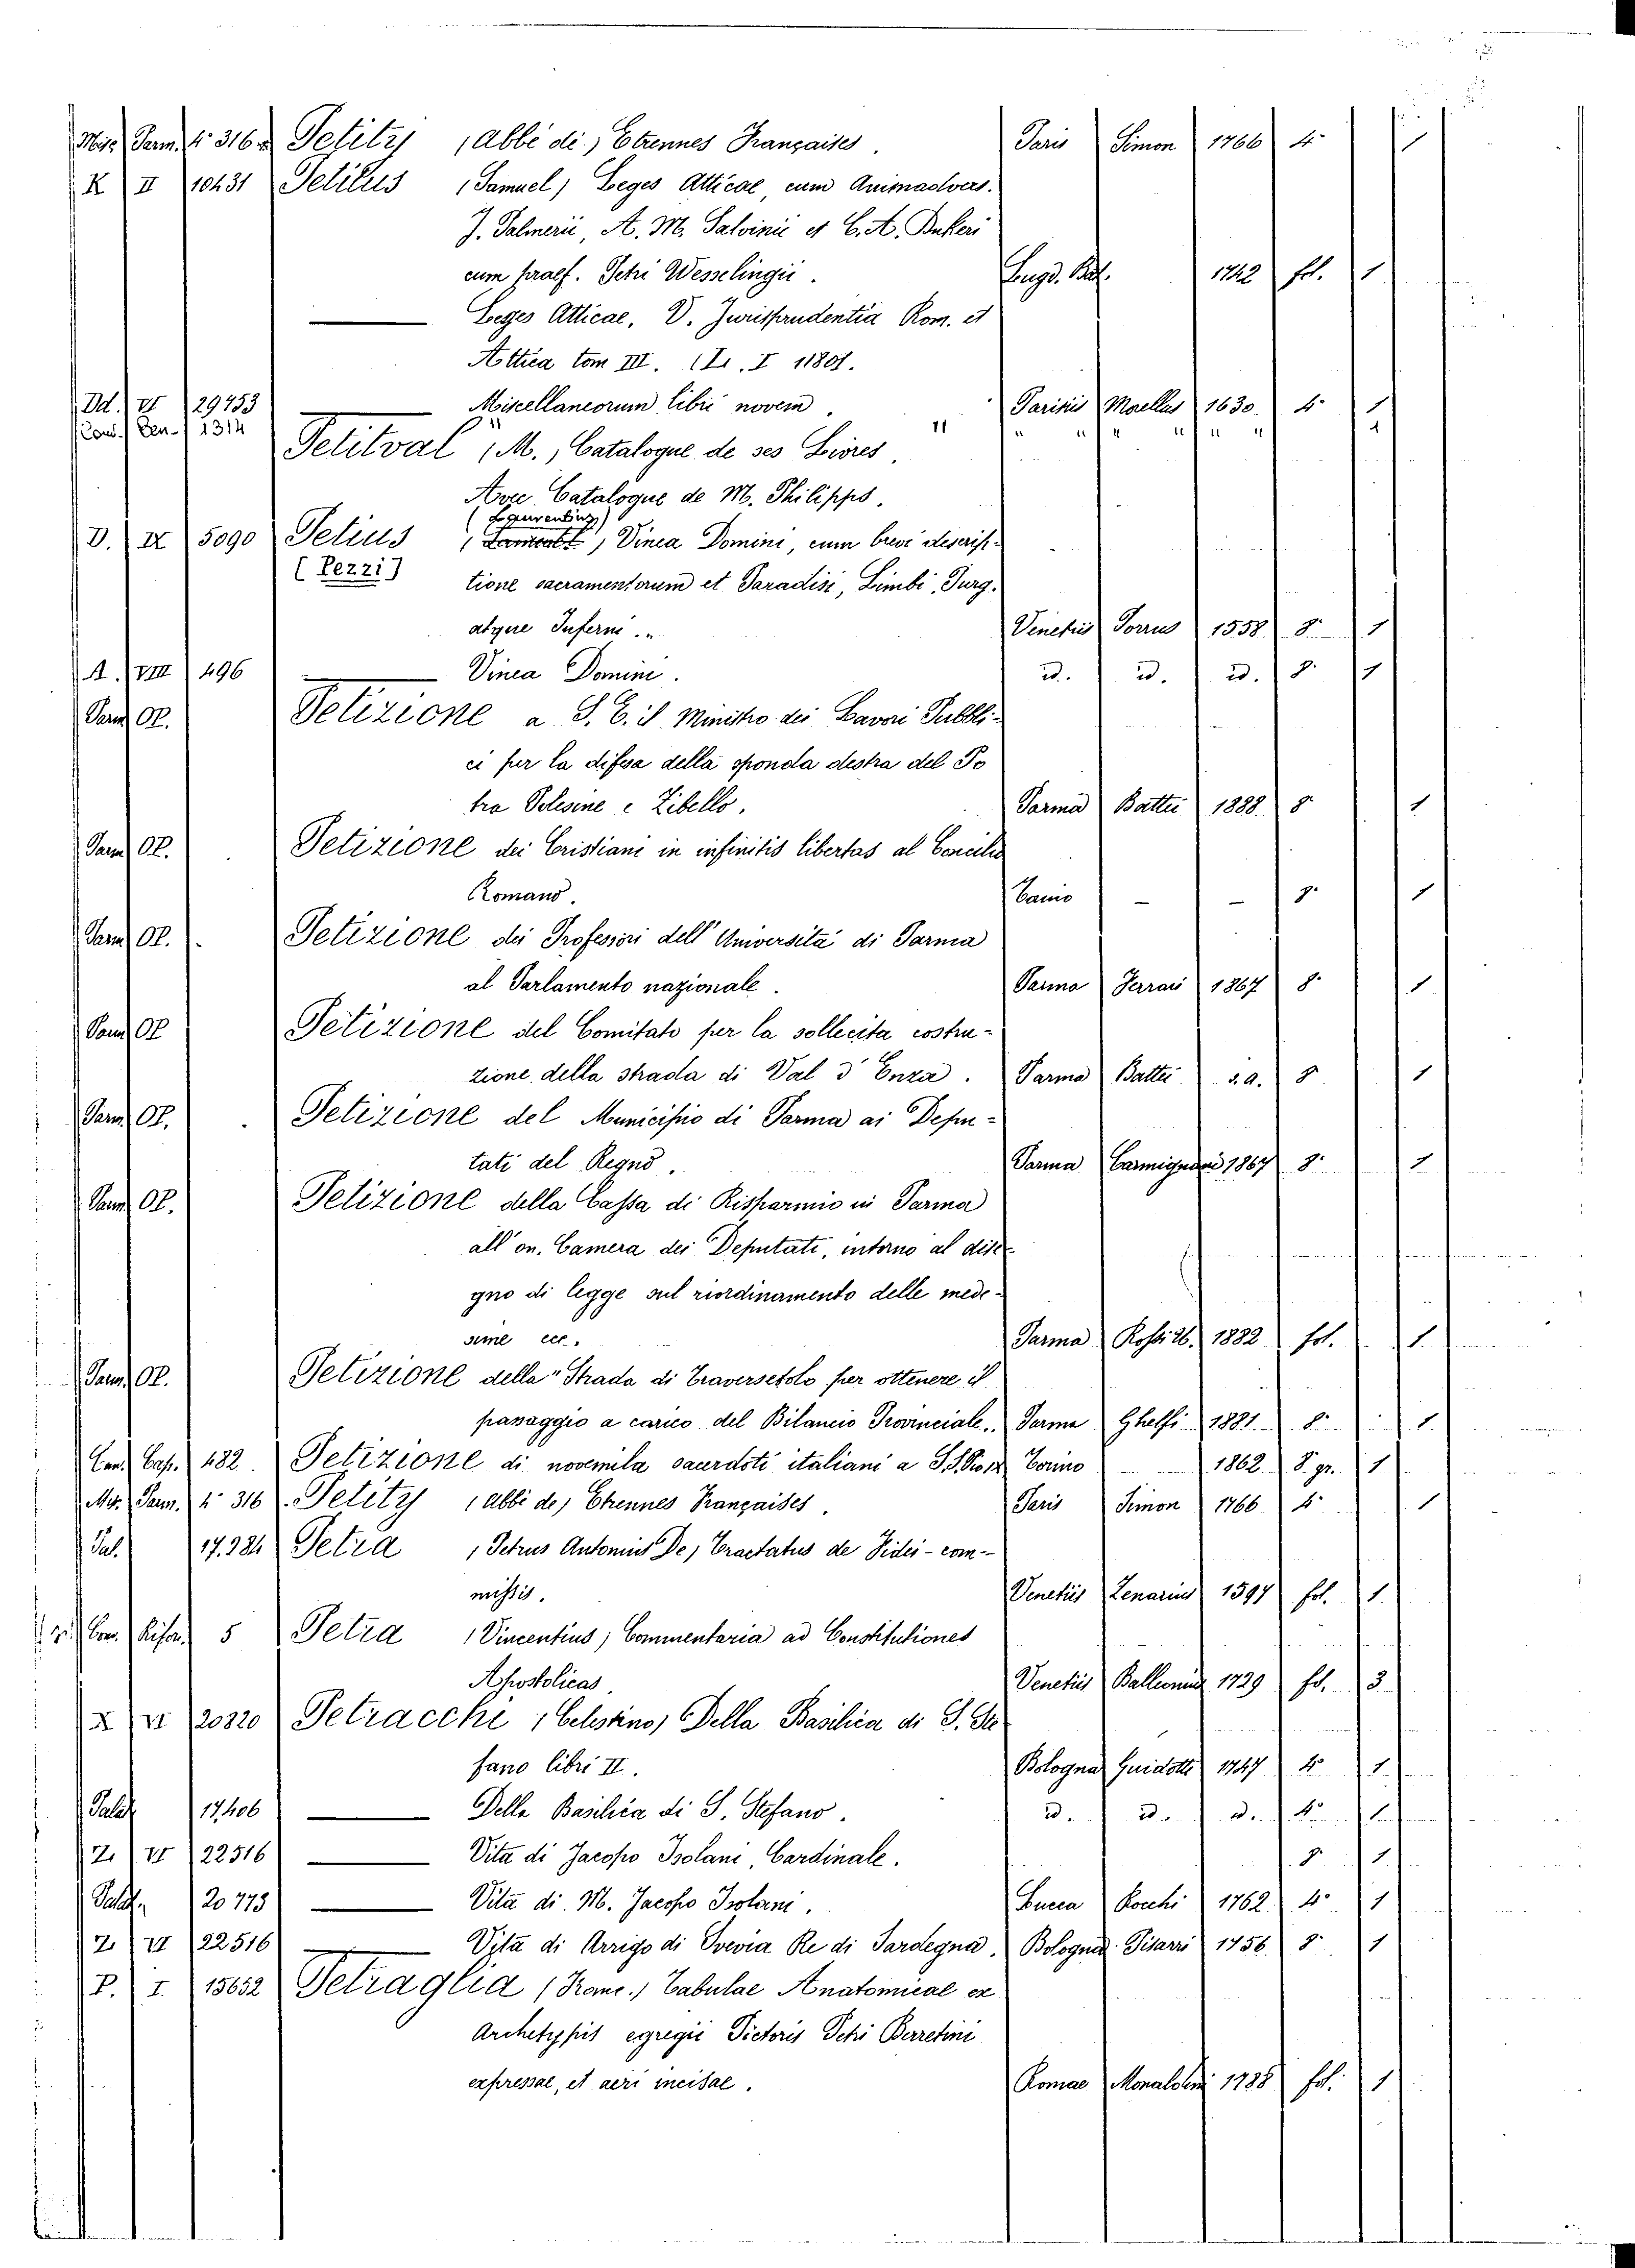 Mis. Parm. 4° 316 Petity (Abbé de) Etrennes Françaises. Paris Simon 1766 4° 1
K II 10431 Petitus (Samuel) Leges Atticae, cum Animadvers.
J. Palmerii, A. M. Salvinii et C. A. Dukeri
cum praef. Petri Wesselingii. Lugd. Bat. 1742 fol. 1
Leges Atticae, V. Jurisprudentia Rom. et
Attica tom III. (Z. I 11801.
Dd. VI 29453 Miscellaneorum libri novem. Parisiis Morellus 1630. 4° 1
Cons. Gen. 1314 " " " " " " 1
Petitval (M.) Catalogue de ses Livres.
Avec Catalogue de M. Philipps.
(Laurentius)
D. IX 5090 Petius Vinea Domini, cum brevi descrip-
(Pezzi) tione sacramentorum et Paradisi, Limbi, Purg.
atque Inferni.. Venetiis Porrus 1558. 8° 1
A. VIII 496 Vinea Domini. id. id. id. 8° 1
Parm. OP. Petizione a S. E. il Ministro dei Lavori Pubbli-
ci per la difesa della sponda destra del Po
tra Polesine e Zibello. Parma Battei 1888 8° 1
Parm. OP. Petizione dei Cristiani in infinitis libertas al Concilio
Romano. Cairo - - 8° 1
Parm. OP. Petizione dei Professori dell' Università di Parma
al Parlamento nazionale. Parma Ferrari 1867 8° 1
Parm. OP Petizione del Comitato per la sollecita costru-
zione della strada di Val d' Enza. Parma Battei s.a. 8° 1
Parm. OP. Petizione del Municipio di Parma ai Depu-
tati del Regno. Parma Carmignani 1867 8° 1
Parm. OP. Petizione della Cassa di Risparmio in Parma
all' on. Camera dei Deputati, intorno al dise-
gno di legge sul riordinamento delle mede-
sime ecc. Parma Rossi Ub. 1882 fol. 1.
Parm. OP. Petizione della "Strada di Traversetolo per ottenere il
passaggio a carico del Bilancio Provinciale,, Parma Ghelfi 1881. 8° 1.
Can. Cap. 482. Petizione di novemila sacerdoti italiani a S. S. Pio IX Torino 1862. 8° gr. 1
Mis. Parm. 4° 316. Petity (Abbé de) Etrennes Françaises. Paris Simon 1766 4° 1
Pal. 17.284 Petra (Petrus Antonius De) Tractatus de Fidei-com-
missis. Venetiis Zenarius 1597 fol. 1.
Con. 5 Petra (Vincentius) Commentaria ad Constitutiones
Apostolicas. Venetiis Balleonius 1729 fol. 3
X VI 20320 Petracchi (Celestino) Della Basilica di S. Ste-
fano libri II. Bologna Guidotti 1747 4° 1.
Palat. 17.406 Della Basilica di S. Stefano. id. id. id. 4° 1.
Z. VI 22516 Vita di Jacopo Isolani, Cardinale. 8° 1.
Palat. 20 773 Vita di M. Jacopo Isolani. Lucca Rocchi 1762. 4° 1
Z. VI 22516 Vita di Arrigo di Svevia Re di Sardegna. Bologna Pisarri 1756. 8° 1
P. I. 15652 Petraglia (Franc.) Tabulae Anatomicae ex
Archetypis egregii Pictoris Petri Berretini
expressae, et aeri incisae. Romae Monaldini 1788 fol. 1